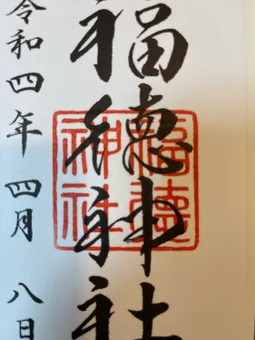 福徳神社
福徳
神社
令和四年 四月 八日